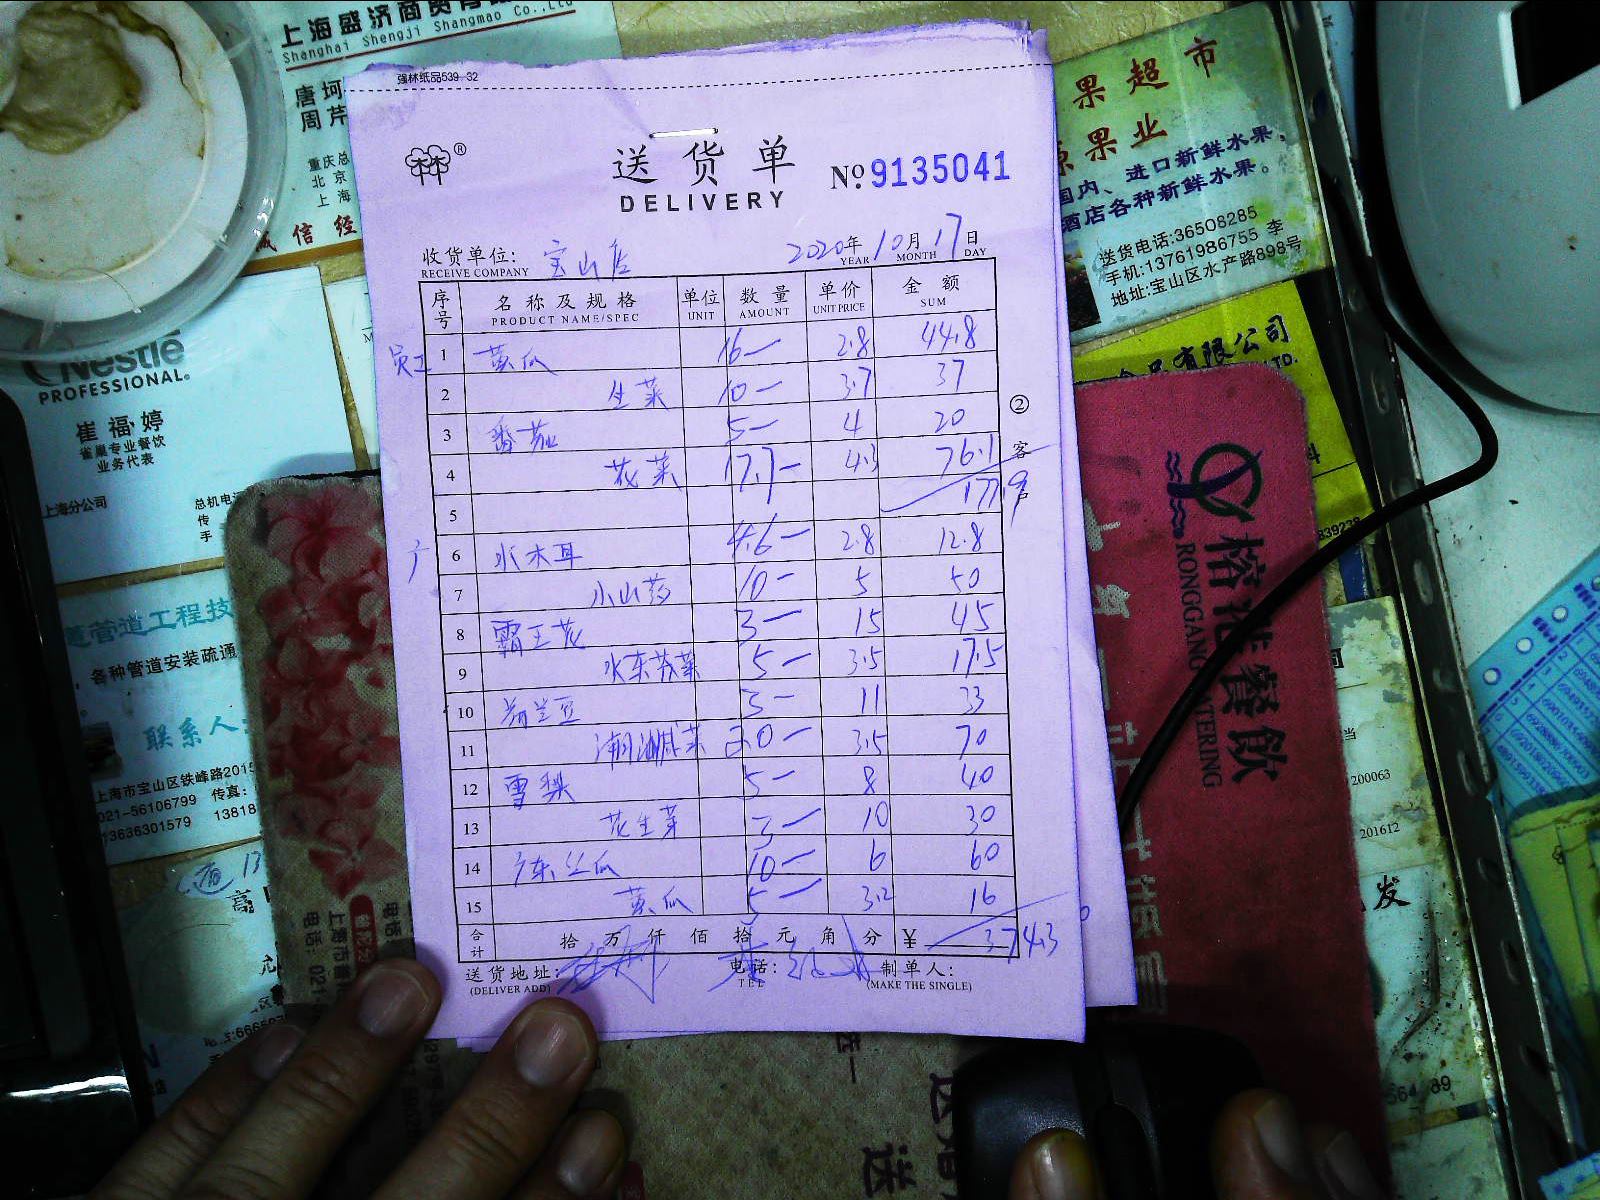 上海盛济商贸有限
Shanghai Shengji Shangmao Co.,Ltd
唐坷
周芹
重庆总
北京
上海
诚信经
Nestlé
PROFESSIONAL.
崔福婷
雀巢专业餐饮
业务代表
上海分公司
总机电
传
手
管道工程技
各种管道安装疏通
联系人:
上海市宝山区铁峰路2015
021-56106799 传真:
13636301579 13818
果超市
果业
国内、进口新鲜水果,
酒店各种新鲜水果。
送货电话:36508285
手机:13761986755 李
地址:宝山区水产路898号
食品有限公司
LTD.
榕港餐飲
RONGGANG CATERING
200063
201612
强林纸品539-32
林林®
送货单
DELIVERY
No 9135041
收货单位: 宝山店 2020年10月17日
RECEIVE COMPANY YEAR MONTH DAY
序号 名称及规格 单位 数量 单价 金额
PRODUCT NAME/SPEC UNIT AMOUNT UNIT PRICE SUM
员工 1 黄瓜 16 2.8 44.8
2 生菜 10 3.7 37
3 番茄 5 4 20
4 花菜 17.7 4.3 76.1
5 177.9
②客户
广 6 水木耳 4.6 2.8 12.8
7 小山药 10 5 50
8 霸王花 3 15 45
9 水东芥菜 5 3.5 17.5
10 荷兰豆 3 11 33
11 潮汕咸菜 20 3.5 70
12 雪梨 5 8 40
13 花生芽 3 10 30
14 广东丝瓜 10 6 60
15 黄瓜 5 3.2 16
合计 拾万仟佰拾元角分 ¥ 374.3
送货地址: 电话: 制单人:
(DELIVER ADD) TEL (MAKE THE SINGLE)